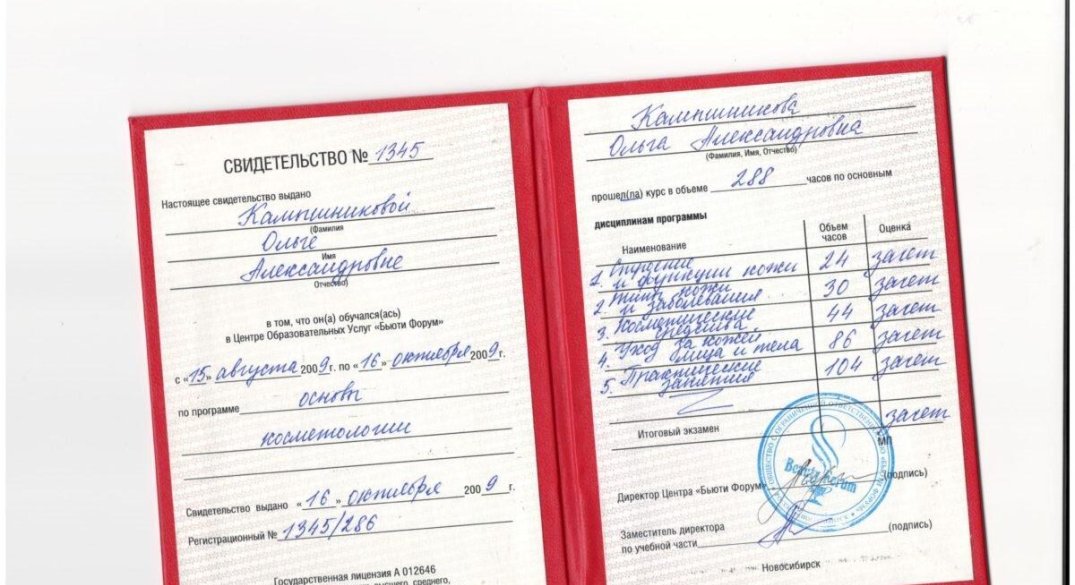 СВИДЕТЕЛЬСТВО № 1345
Настоящее свидетельство выдано
Камышниковой
(Фамилия
Ольге
Имя
Александровне
Отчество)
в том, что он(а) обучался(ась)
в Центре Образовательных Услуг «Бьюти Форум»
с «15» августа 2009г. по «16» октября 2009г.
по программе основы
косметологии
Свидетельство выдано «16» октября 2009 г.
Регистрационный № 1345/286
Государственная лицензия А 012646
среднего,
Камышникова
Ольга Александровна
(Фамилия, Имя, Отчество)
прошел(ла) курс в объеме 288 часов по основным
дисциплинам программы
Наименование Объем часов Оценка
1. Строение и функции кожи 24 зачет
2. Типы кожи и заболевания 30 зачет
3. Косметические средства 44 зачет
4. Уход за кожей лица и тела 86 зачет
5. Практические занятия 104 зачет
Итоговый экзамен зачет
МП
Директор Центра «Бьюти Форум» (подпись)
Заместитель директора
по учебной части (подпись)
Новосибирск
Beauty Forum